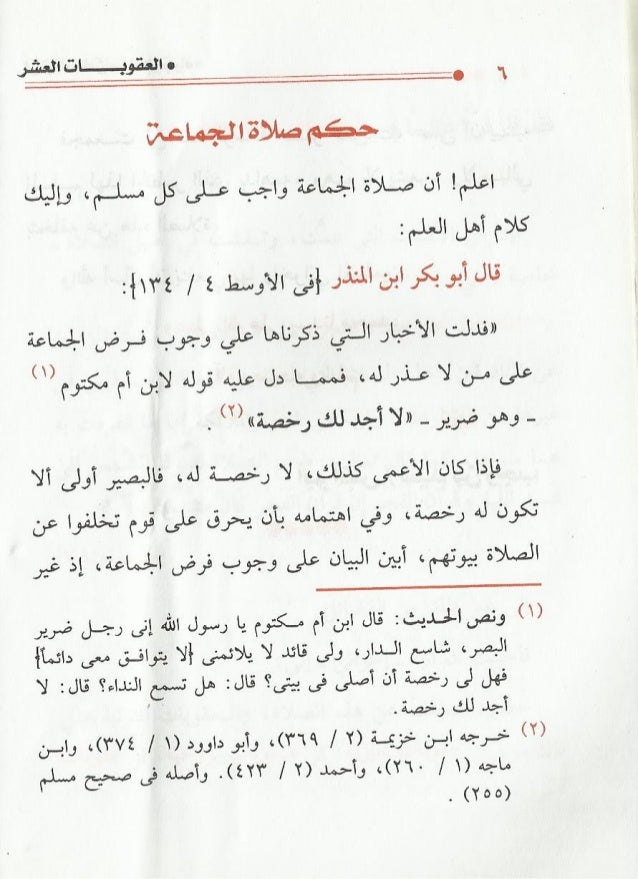 • العقوبـــات العشر
٦
حكم صلاة الجماعة
اعلم! أن صلاة الجماعة واجب على كل مسلم، وإليك
كلام أهل العلم:
قال أبو بكر ابن المنذر {فى الأوسط ٤ / ١٣٤}:
«فدلت الأخبار التي ذكرناها علي وجوب فرض الجماعة
على من لا عذر له، فمما دل عليه قوله لابن أم مكتوم (١)
- وهو ضرير - «لا أجد لك رخصة» (٢) .
فإذا كان الأعمى كذلك، لا رخصة له، فالبصير أولى ألا
تكون له رخصة، وفي اهتمامه بأن يحرق على قوم تخلفوا عن
الصلاة بيوتهم، أبين البيان على وجوب فرض الجماعة، إذ غير
(١) ونص الحديث: قال ابن أم مكتوم يا رسول الله إنى رجل ضرير
البصر، شاسع الدار، ولى قائد لا يلائمنى {لا يتوافق معى دائماً}
فهل لى رخصة أن أصلى فى بيتى؟ قال: هل تسمع النداء؟ قال: لا
أجد لك رخصة.
(٢) خرجه ابن خزيمة (٢ / ٣٦٩)، وأبو داوود (١ / ٣٧٤)، وابن
ماجه (١ / ٢٦٠)، وأحمد (٢ / ٤٢٣). وأصله فى صحيح مسلم
(٢٥٥) .